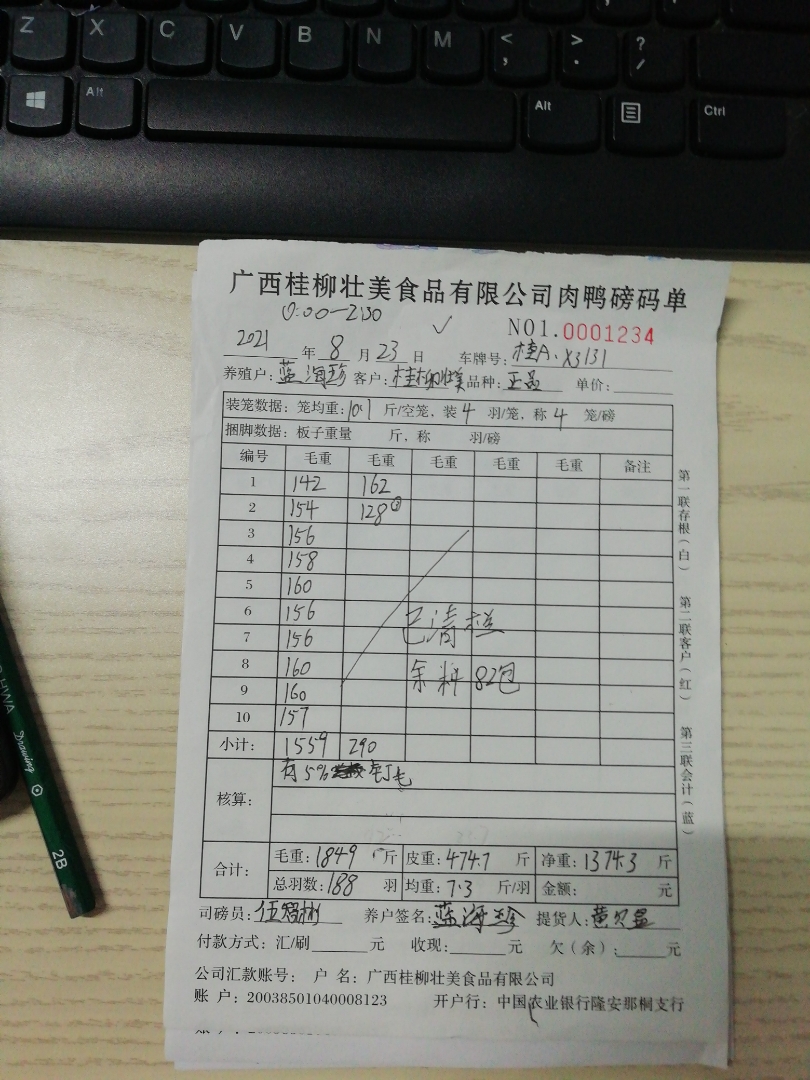 Z X C V B N M < , > . ? /
Alt Alt Ctrl
广西桂柳壮美食品有限公司肉鸭磅码单
NO1.0001234
2021年8月23日 车牌号:桂A·X3131
养殖户:蓝海珍 客户:桂柳壮美 品种:正品 单价:
装笼数据:笼均重:10.1斤/空笼,装4羽/笼,称4笼/磅
捆脚数据:板子重量 斤,称 羽/磅
编号 毛重 毛重 毛重 毛重 毛重 备注
1 142 162
2 154 128②
3 156
4 158
5 160
6 156 已清栏
7 156
8 160 余料82包
9 160
10 157
小计: 1559 290
核算: 有5% 毛
合计: 毛重:1849斤 皮重:474.7斤 净重:1374.3斤
总羽数:188羽 均重:7.3斤/羽 金额: 元
司磅员:伍智彬 养户签名:蓝海珍 提货人:黄
付款方式:汇/刷 元 收现: 元 欠(余): 元
公司汇款账号: 户 名:广西桂柳壮美食品有限公司
账 户:20038501040008123 开户行:中国农业银行隆安那桐支行
第一联存根(白)
第二联客户(红)
第三联会计(蓝)
Drawing
2B